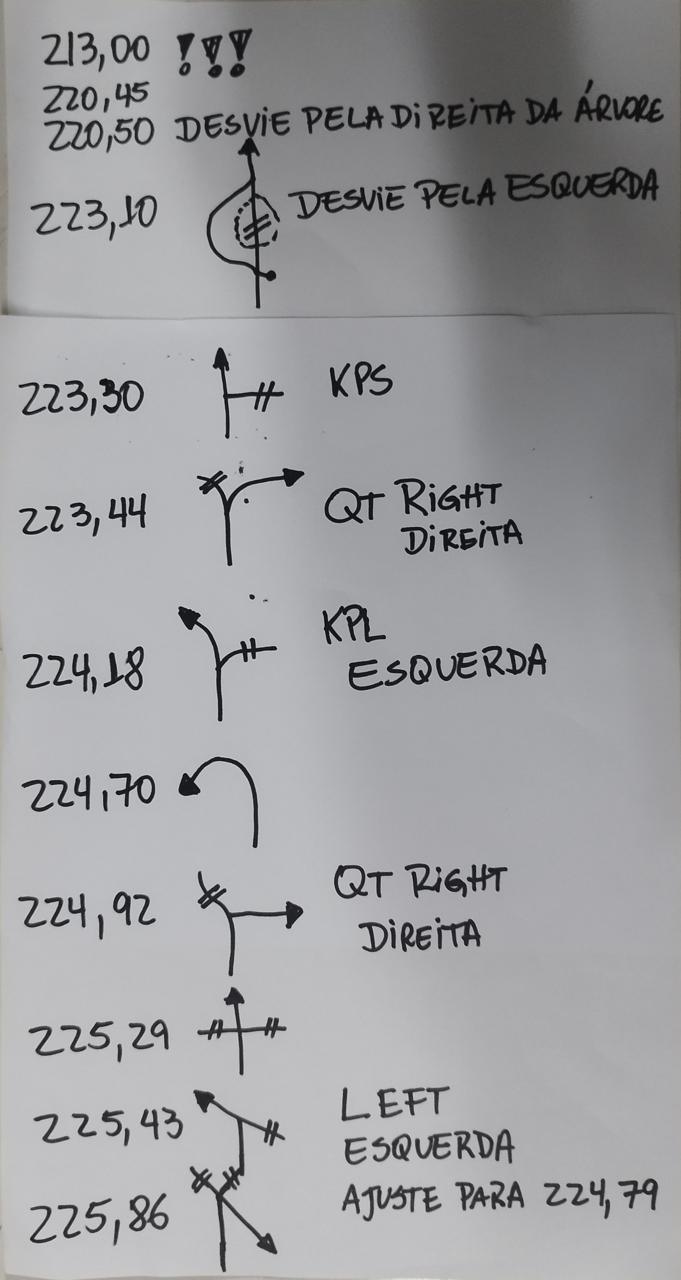 213,00 !!!
220,45
220,50 DESVIE PELA DIREITA DA ÁRVORE
223,10 DESVIE PELA ESQUERDA
223,30 KPS
223,44 QT RIGHT
DIREITA
224,18 KPL
ESQUERDA
224,70
224,92 QT RIGHT
DIREITA
225,29
225,43 LEFT
ESQUERDA
225,86 AJUSTE PARA 224,79